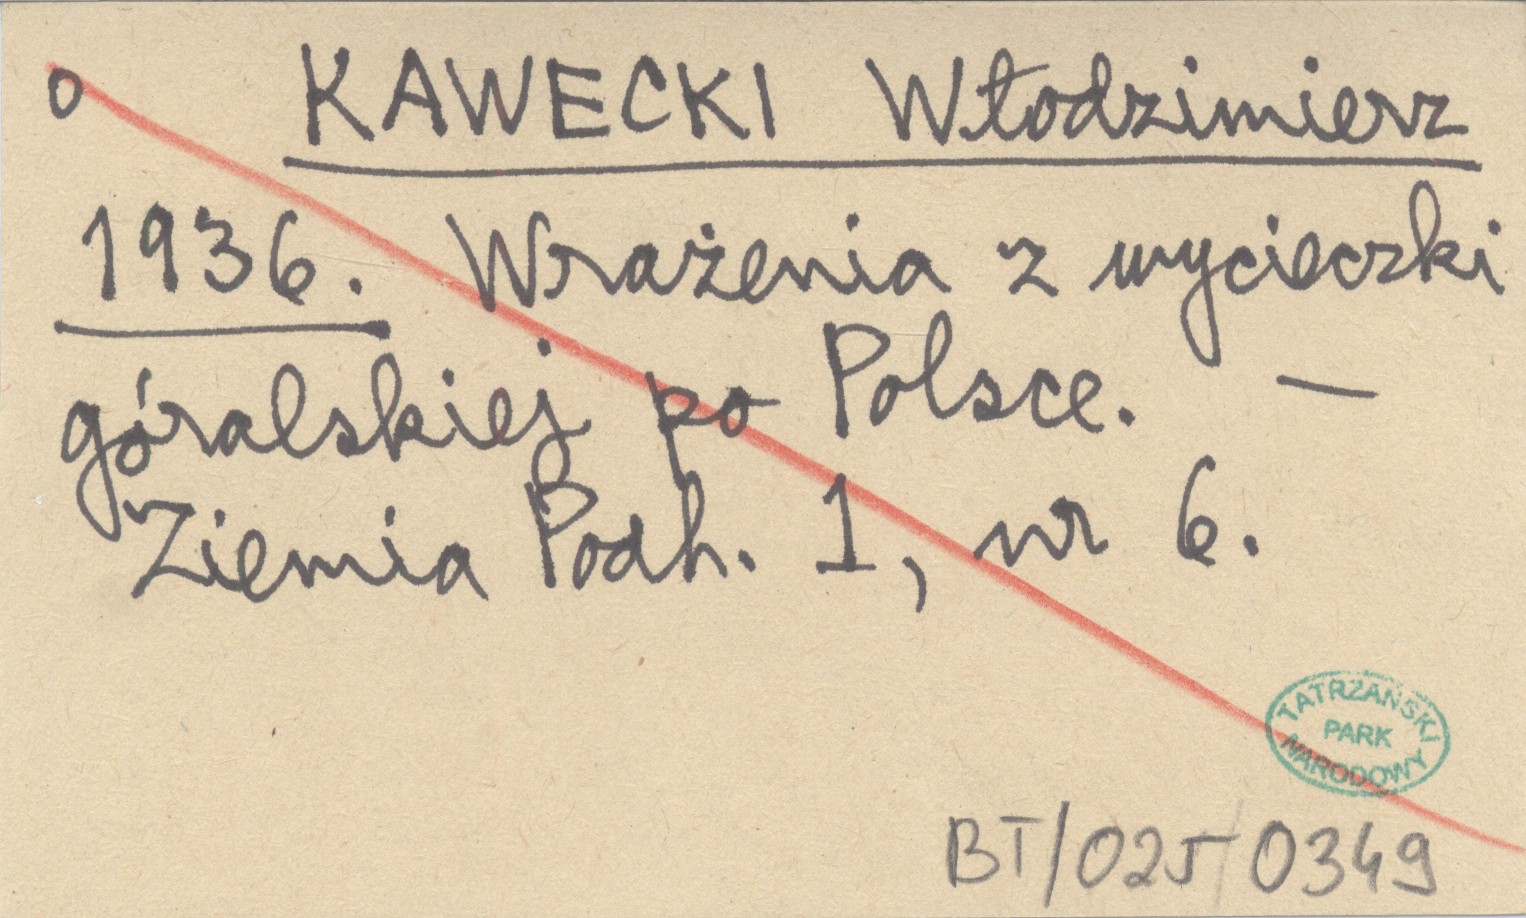 o KAWECKI Włodzimierz
1936. Wrażenia z wycieczki
góralskiej po Polsce. —
Ziemia Podh. 1, nr 6.
TATRZAŃSKI
PARK
NARODOWY
BT/025/0349